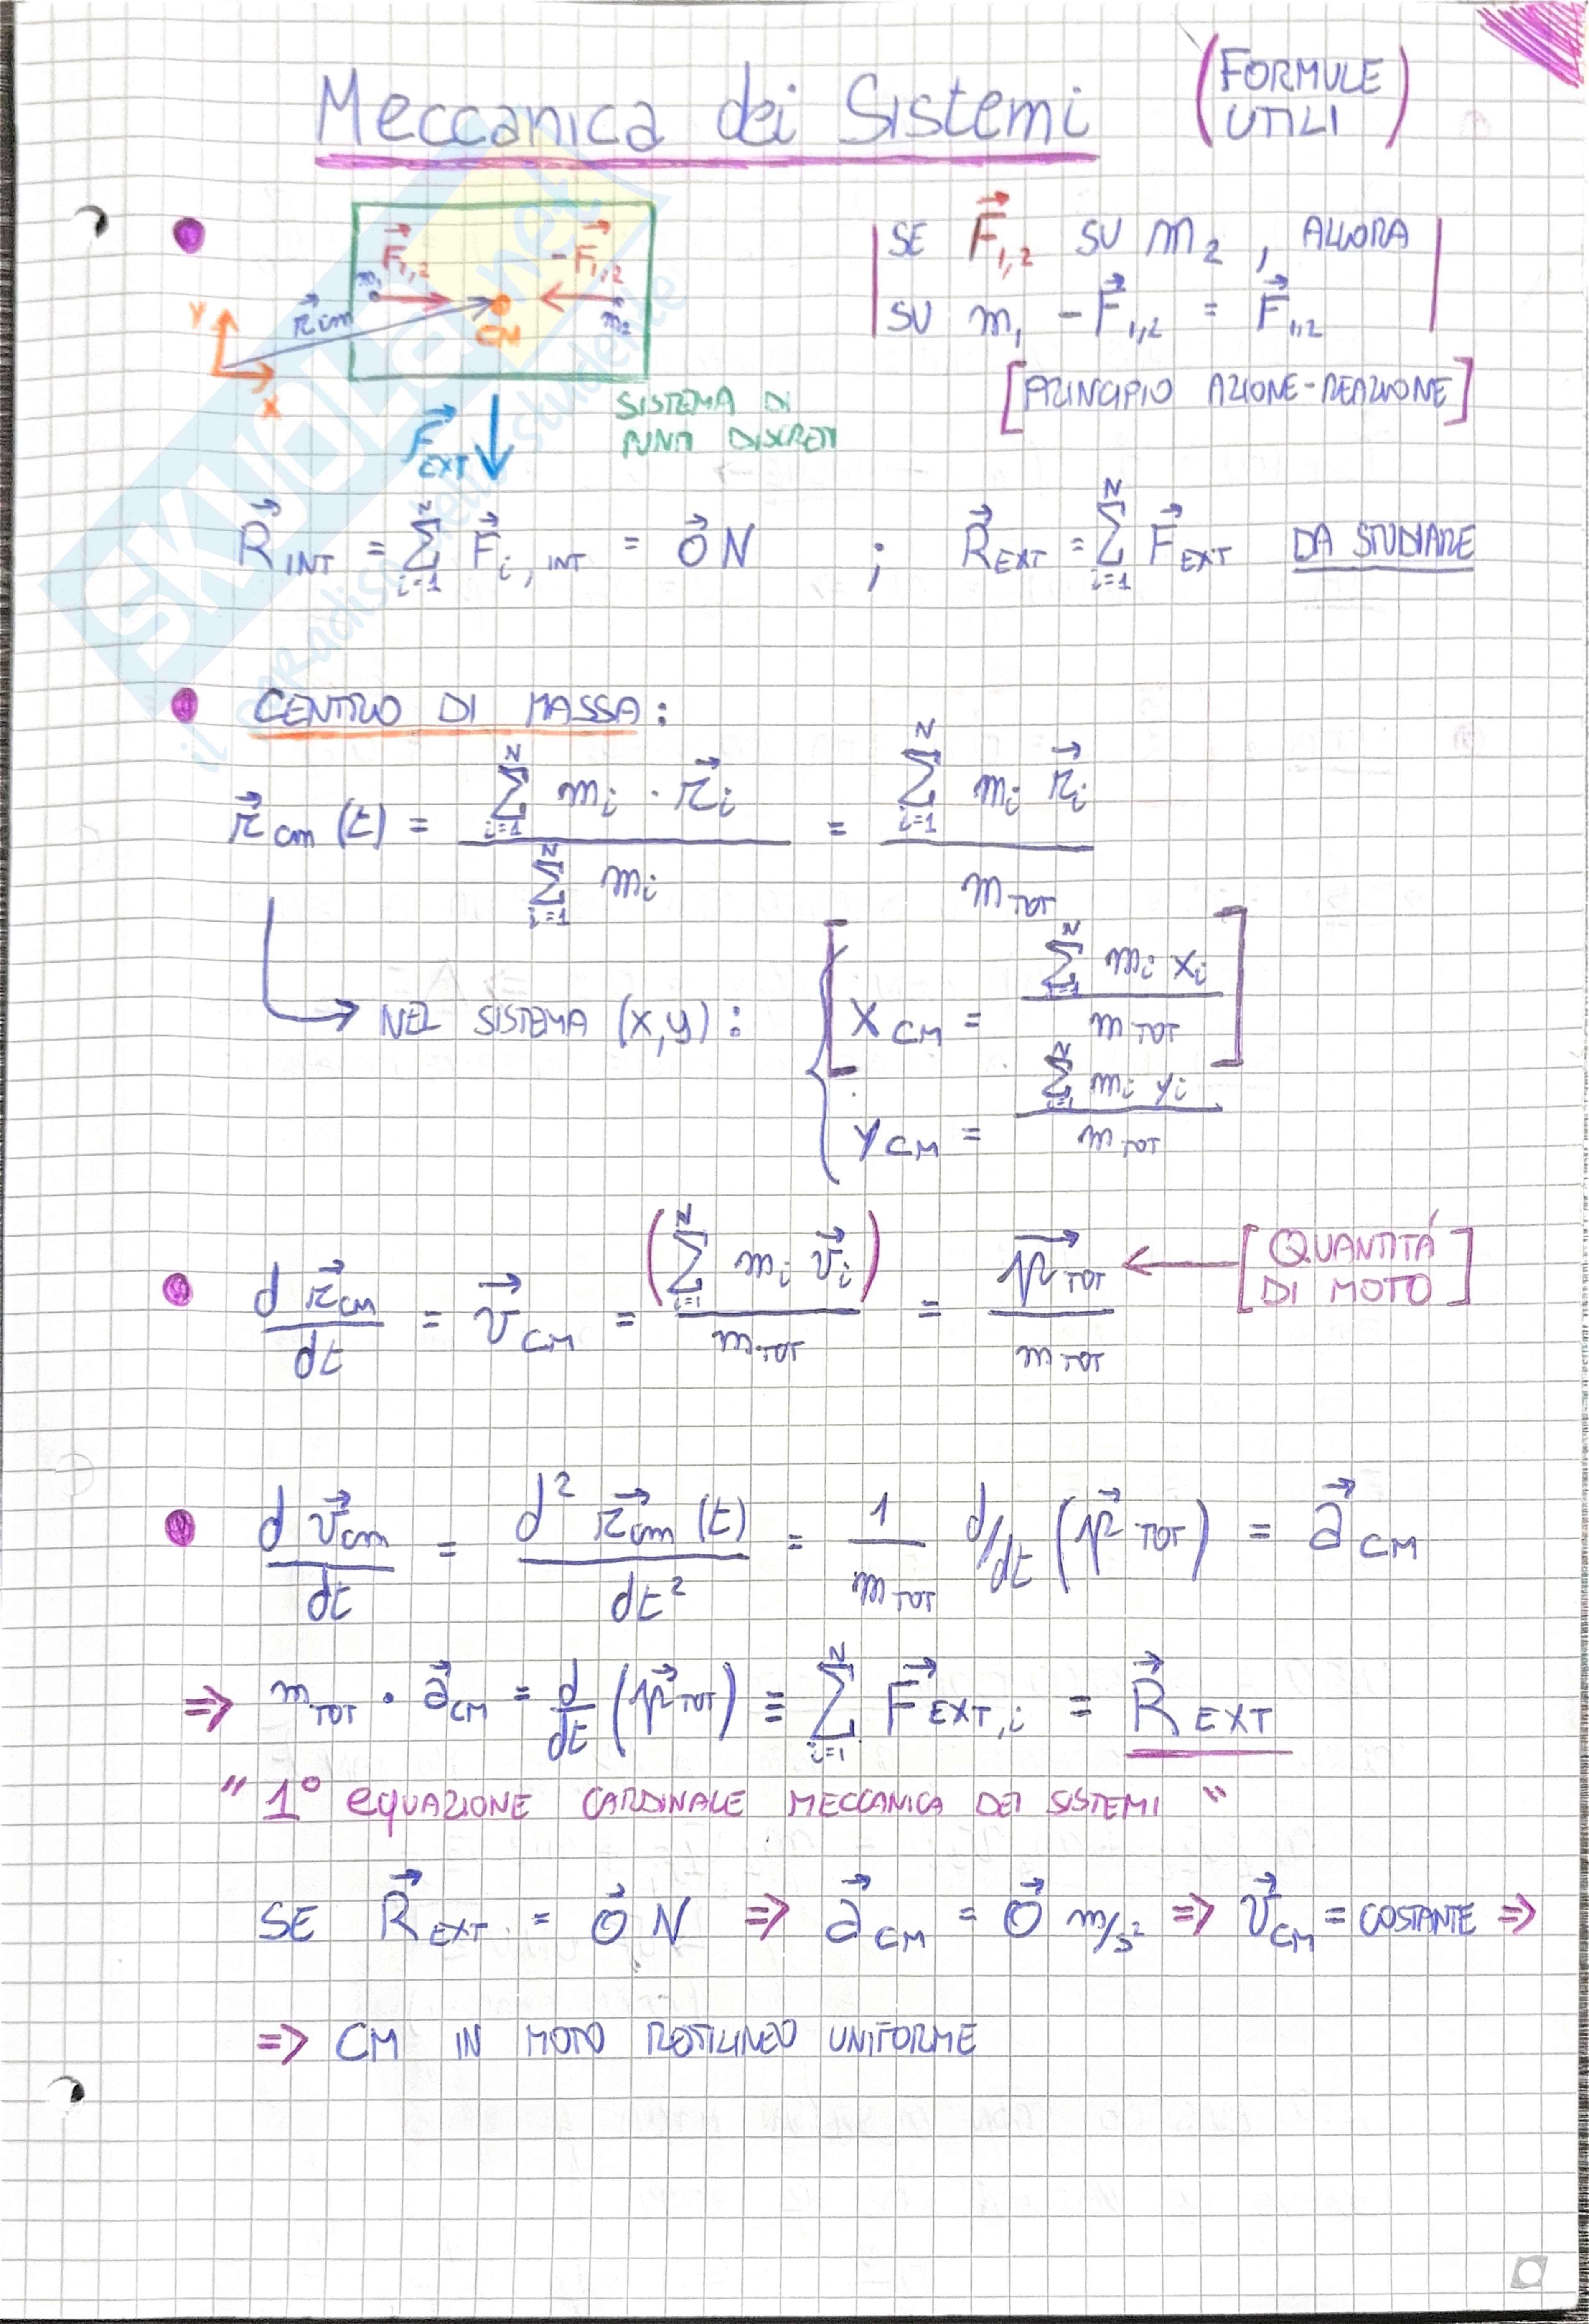 Meccanica dei Sistemi (FORMULE UTILI)
F⃗1,2 -F⃗1,2
m1 m2
r⃗cm CM
Y
X
F⃗EXT
SISTEMA DI
PUNTI DISCRETI
SE F⃗1,2 SU m2, ALLORA
SU m1 -F⃗1,2 = F⃗1,2
[PRINCIPIO AZIONE-REAZIONE]
R⃗INT = Σ(i=1→N) F⃗i,INT = 0⃗ N ; R⃗EXT = Σ(i=1→N) F⃗EXT DA STUDIARE
CENTRO DI MASSA:
r⃗cm (t) = (Σ(i=1→N) mi · r⃗i) / (Σ(i=1→N) mi) = (Σ(i=1→N) mi r⃗i) / mTOT
→ NEL SISTEMA (x,y): { [XCM = (Σ(i=1→N) mi xi) / mTOT]
YCM = (Σ(i=1→N) mi yi) / mTOT
d r⃗cm / dt = v⃗CM = (Σ(i=1→N) mi v⃗i) / mTOT = p⃗TOT / mTOT ← [QUANTITÁ DI MOTO]
d v⃗cm / dt = d² r⃗cm (t) / dt² = 1 / mTOT d/dt (p⃗TOT) = a⃗CM
⇒ mTOT · a⃗CM = d/dt (p⃗TOT) ≡ Σ(i=1→N) F⃗EXT,i = R⃗EXT
" 1° eQUAZIONE CARDINALE MECCANICA DEI SISTEMI "
SE R⃗EXT = 0⃗ N ⇒ a⃗CM = 0⃗ m/s² ⇒ v⃗CM = COSTANTE ⇒
⇒ CM IN MOTO RETTILINEO UNIFORME
SKUOLA.net
il paradiso dello studente